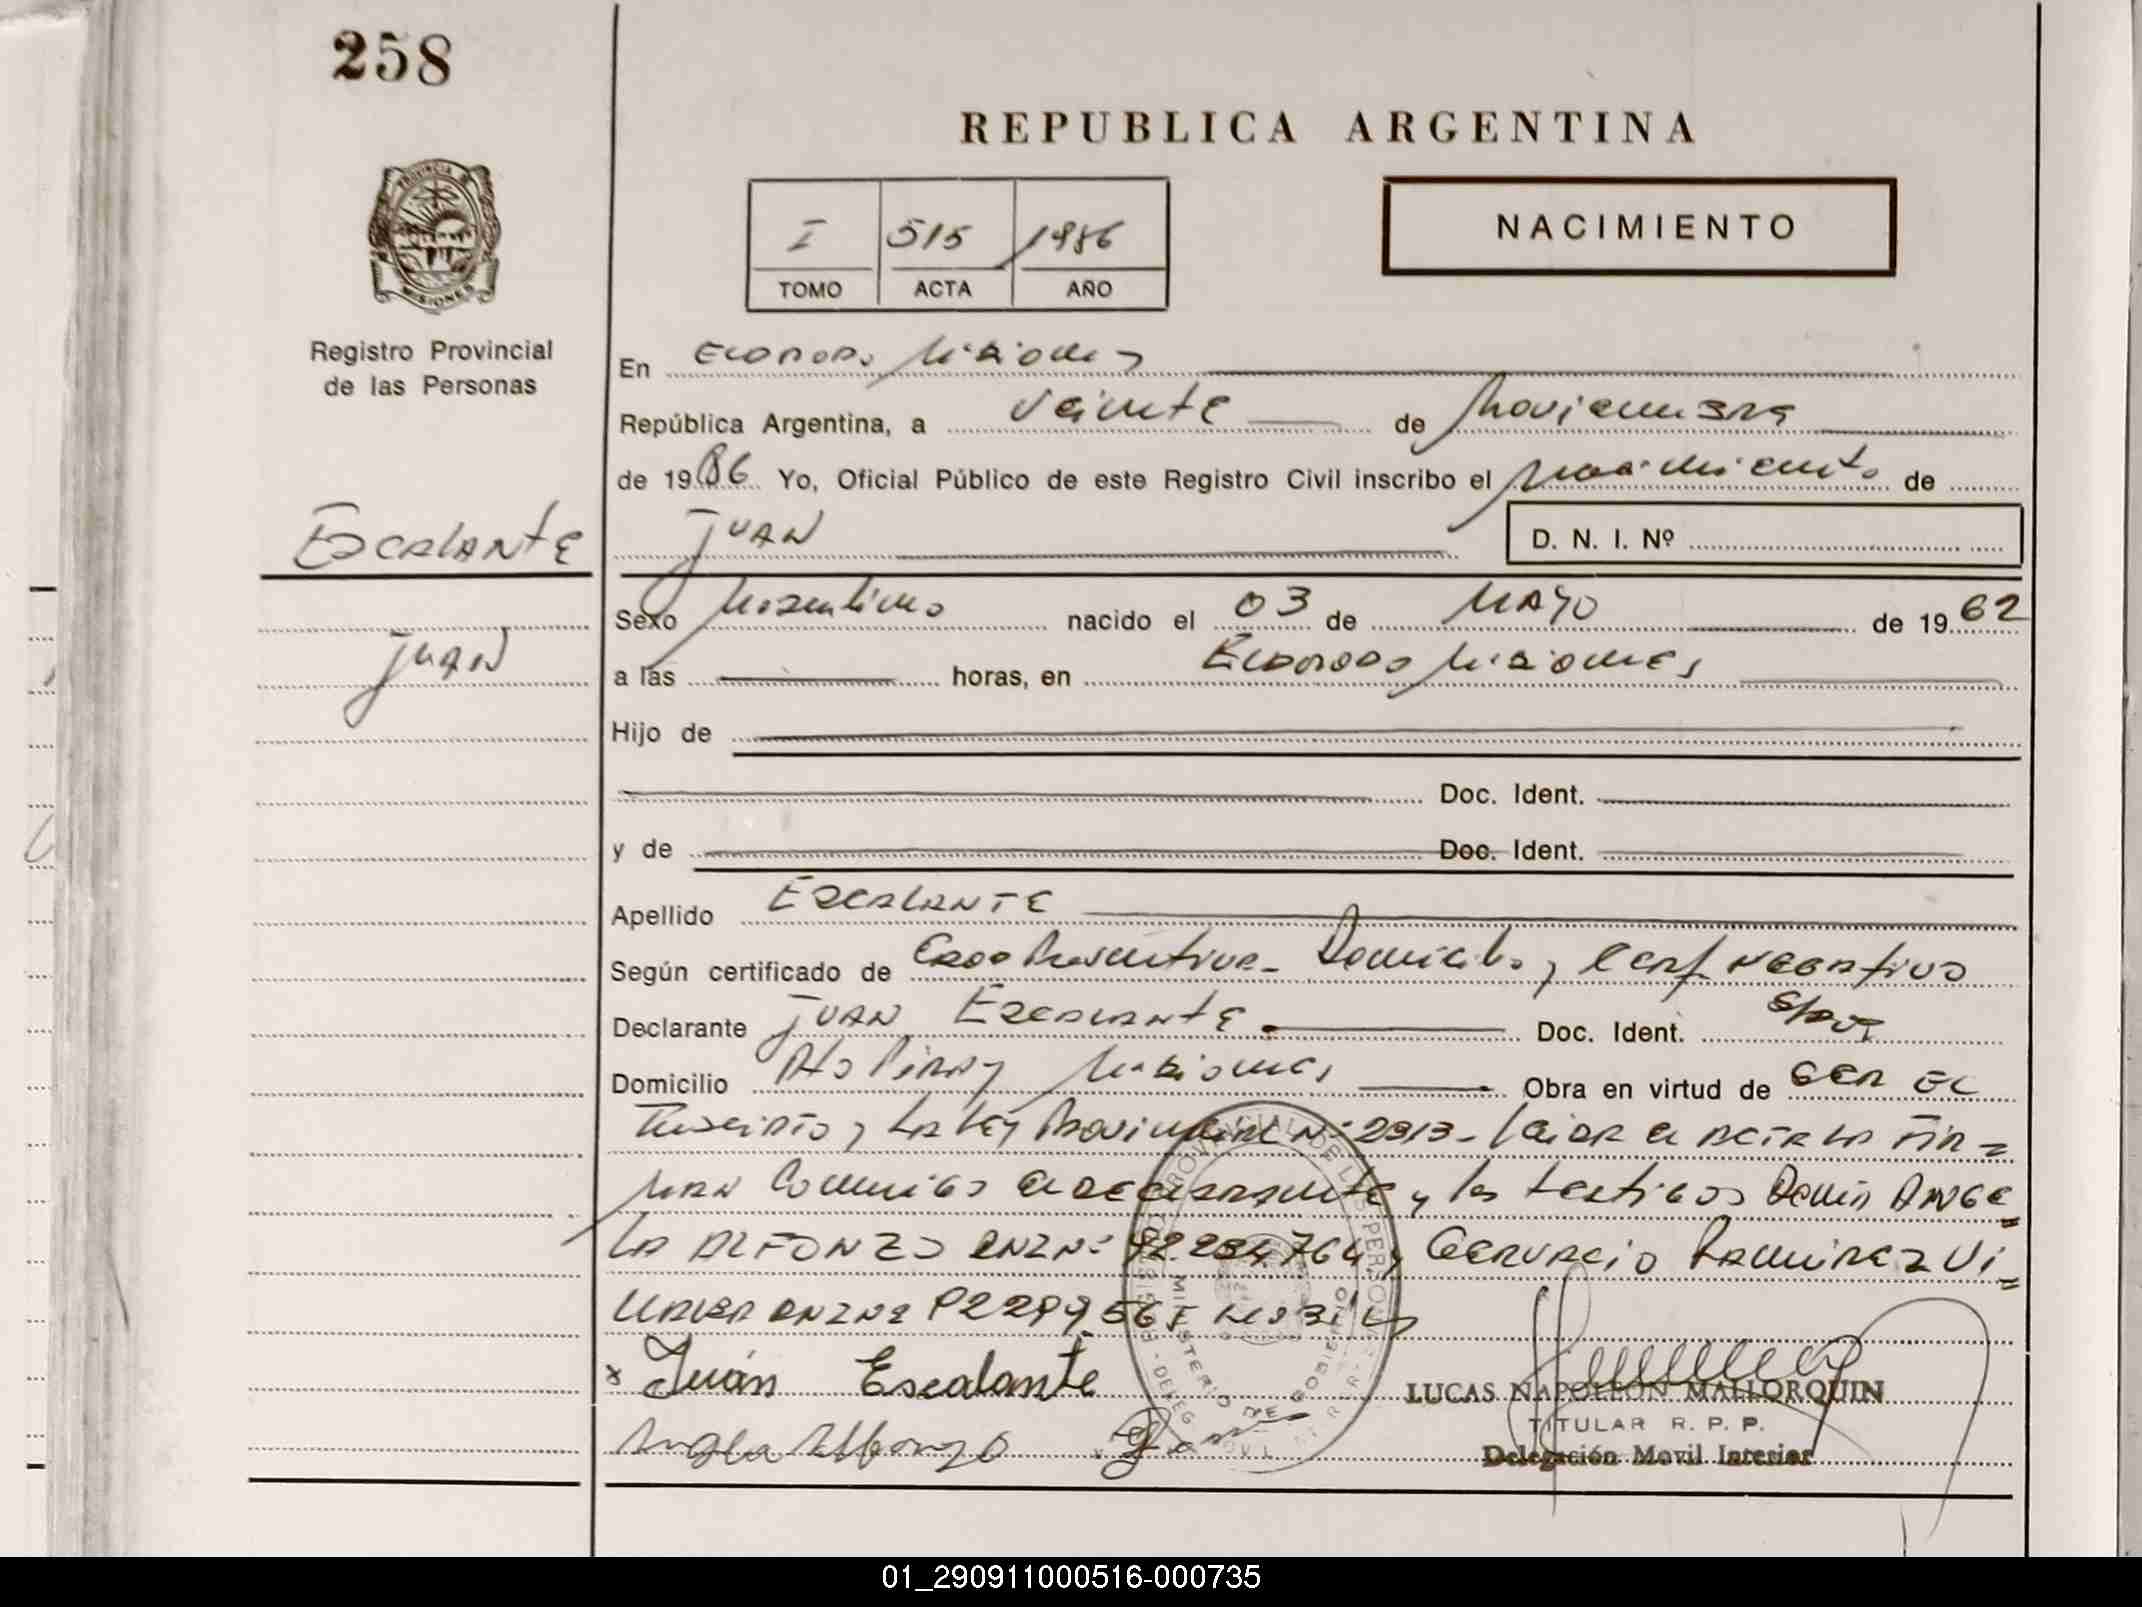 258
REPUBLICA ARGENTINA
NACIMIENTO
I 515 1986
TOMO ACTA AÑO
PROVINCIA DE
MISIONES
Registro Provincial
de las Personas
En Eldorado Misiones
República Argentina, a Veinte de Noviembre
de 1986 Yo, Oficial Público de este Registro Civil inscribo el nacimiento de
Escalante
Juan
D. N. I. Nº
Juan
Sexo Masculino nacido el 03 de Mayo de 1962
a las horas, en Eldorado Misiones
Hijo de
Doc. Ident.
y de Doc. Ident.
Apellido Escalante
Según certificado de Edad Presuntiva - Domicilio y Cert Negativo
Declarante Juan Escalante Doc. Ident.
Domicilio Pto Piray Misiones Obra en virtud de Ser el
Inscripto y La Ley Provincial Nº 2913 - Leida el acta la fir=
man Conmigo el declarante y los testigos Doña Ange=
la Alfonzo 92.234.764 y Gervacio Ramirez Vi=
Juán Escalante
Angela Alfonzo
LUCAS NAPOLEON MALLORQUIN
TITULAR R. P. P.
Delegación Movil Interior
REGISTRO PROVINCIAL DE LAS PERSONAS
MINISTERIO DE GOBIERNO
01_290911000516-000735